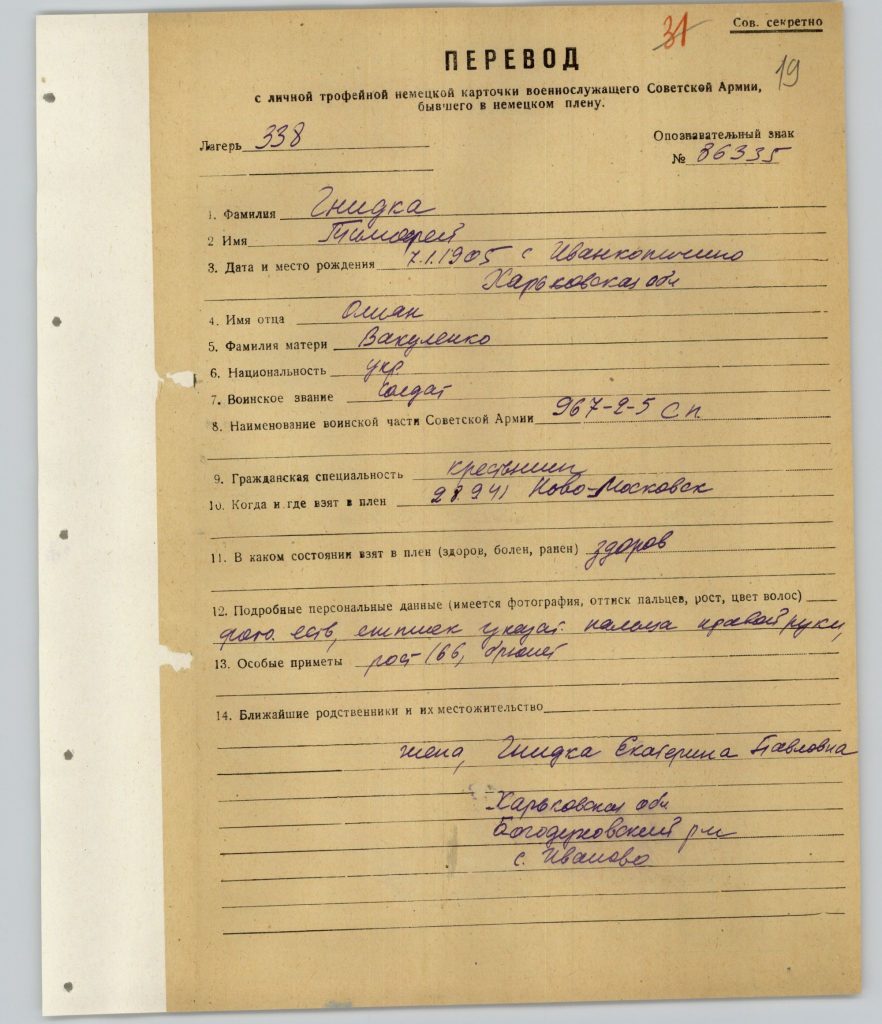 31
Сов. секретно
ПЕРЕВОД
19
с личной трофейной немецкой карточки военнослужащего Советской Армии,
бывшего в немецком плену.
Лагерь 338
Опознавательный знак
№ 86335
1. Фамилия Гнидка
2 Имя Тимофей
3. Дата и место рождения 7.1.1905 с
Харьковская обл
4. Имя отца
5. Фамилия матери Вакуленко
6. Национальность укр.
7. Воинское звание солдат
8. Наименование воинской части Советской Армии 967-2-5 сп
9. Гражданская специальность
10. Когда и где взят в плен 28.9.41 Ново-Московск
11. В каком состоянии взят в плен (здоров, болен, ранен) здоров
12. Подробные персональные данные (имеется фотография, оттиск пальцев, рост, цвет волос)
фото есть, указат. пальца правой руки,
13. Особые приметы рост 166, брюнет
14. Ближайшие родственники и их местожительство
жена, Гнидка Екатерина Павловна
Харьковская обл
Богодуховский р-н
с. Иваново